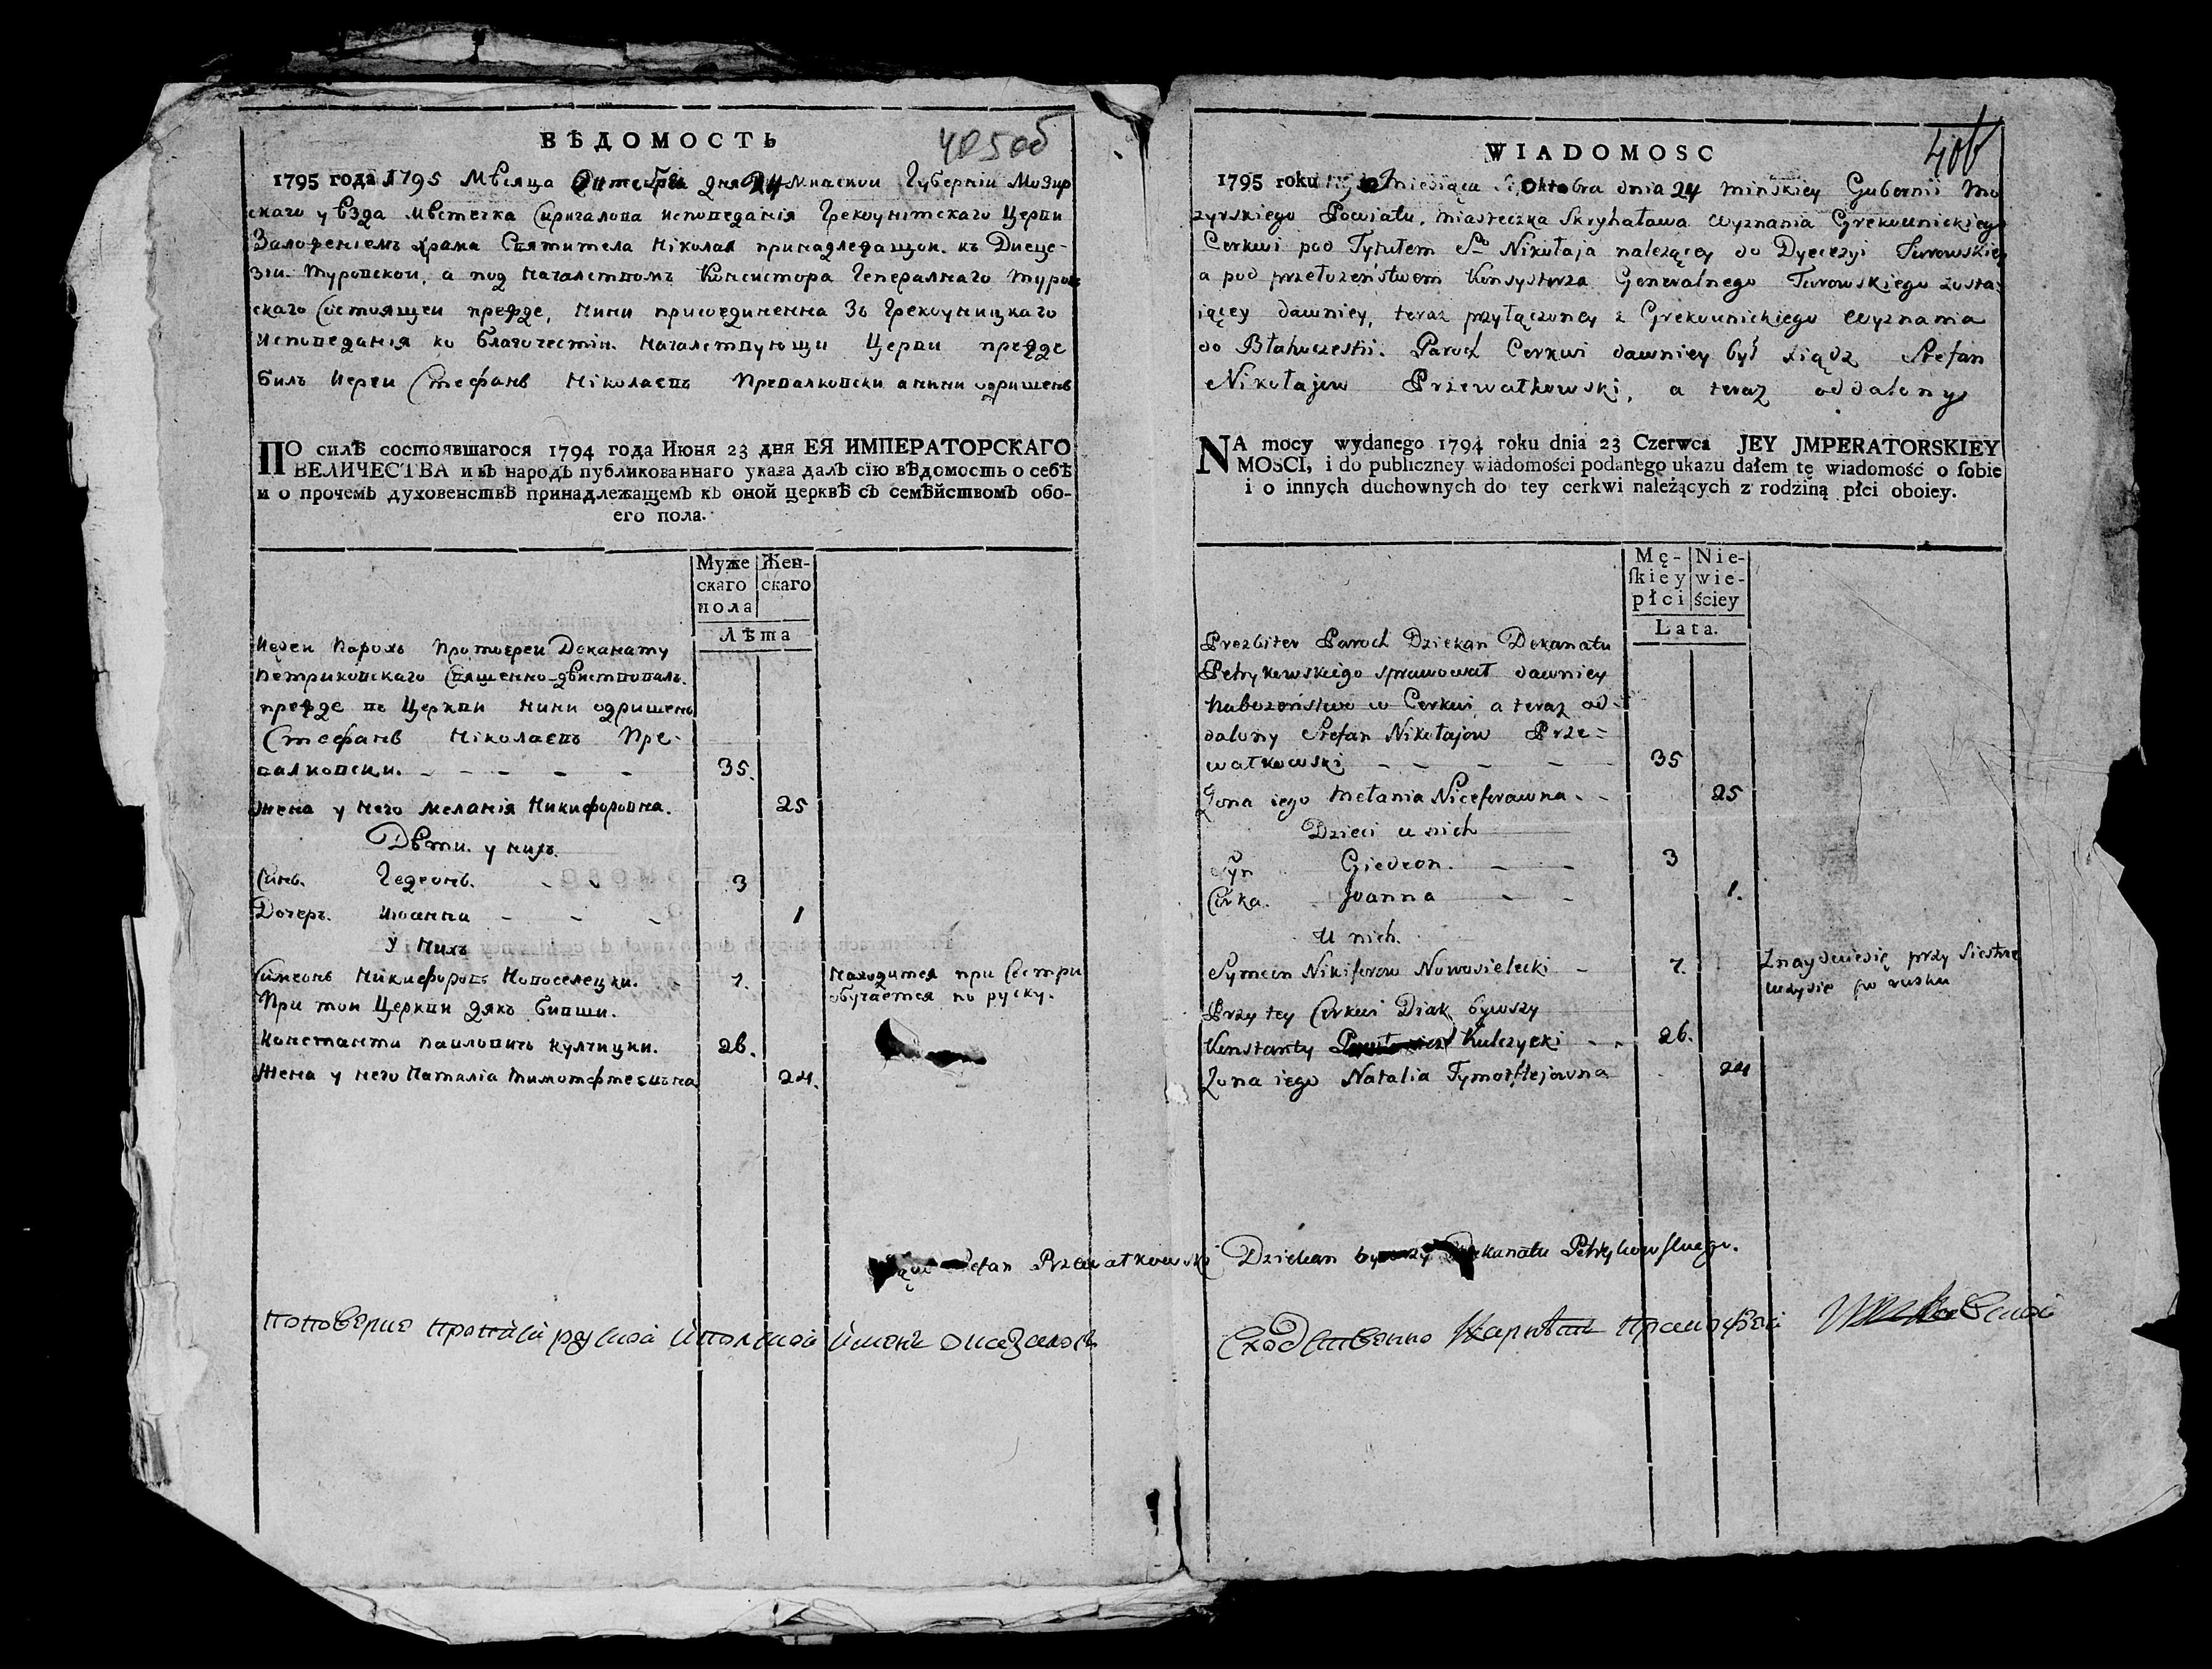 ВѢДОМОСТЬ
405об
1795 года 1795 Мѣсяца Октебра дня 24 Минскои Губернїи Мозир
скаго уѣзда мѣстечка Скригалова исповеданїя Грекоунїтскаго Церкви
Заложенїемъ храма Святителя Нїколая принадлежащои. къ Диеце-
зїи Туровскои, а под началствомъ Консистора Генералнаго Туров
скаго Состоящеи прежде, нини присоединенна Зъ Грекоуницкаго
исповеданїя ко благочестїи. началствующи Церкви прежде
билъ Иереи Стефанъ Нїколаевъ Превалковски анини одришенъ
ПО силѣ состоявшагося 1794 года Июня 23 дня ЕЯ ИМПЕРАТОРСКАГО
ВЕЛИЧЕСТВА и въ народъ публикованнаго указа далъ сїю вѣдомость о себѣ
и о прочемъ духовенствѣ принадлежащемъ къ оной церквѣ съ семѣйствомъ обо-
его пола.
Муже Жен-
скаго скаго
пола
Лѣта
Иереи Парохъ Протоереи Деканату
Петриковскаго Священно-дѣиствовалъ.
прежде въ Церкви нини одришенъ
Стефанъ Нїколаевъ Пре-
валковски. - - - - - 35.
жена у него Меланїя Никифоровна. 25
Дѣти. у нихъ.
Синъ. Гедеонъ. - - 3
Дочеръ. Иоанна - - - 1
У Нихъ
Симеонъ Никифоровъ Новоселецки. - 7. находится при Сестри
обучается по руску.
При тои Церкви дякъ бивши.
Константи Павловичъ кулчицки. 26.
Жена у него Наталїа Тимотфтевъна 24.
Поповерке противъ руской ипольской именъ оказалось
WIADOMOSC
406
1795 roku Miesiąca Oktobra dnia 24 minskiey Gubernii Mo
zyrskiego Powiatu, miasteczka Skryhałowa wyznania Grekounickiego
Cerkwi pod Tytułem Sgo Nikołaja należącey do Dyecezyi Turowskiey
a pod przełożeństwem Konsystorza Generalnego Turowskiego zosta-
iącey dawniey, teraz przyłączoney z Grekounickiego wyznania
do Błahoczestii. Paroch Cerkwi dawniey był Xiądz Stefan
Nikołajow Przewałkowski, a teraz oddalony
NA mocy wydanego 1794 roku dnia 23 Czerwca JEY JMPERATORSKIEY
MOSCI, i do publiczney wiadomości podanego ukazu dałem tę wiadomość o ſobie
i o innych duchownych do tey cerkwi należących z rodziną płci oboiey.
Mę- Nie-
ſkiey wie-
płci ściey
Lata.
Prezbiter Paroch Dziekan Dekanatu
Petrykowskiego sprawował dawniey
nabożeństwo w Cerkwi a teraz od-
dalony Stefan Nikołajow Prze=
wałkowski - - - - - 35
Żona iego Mełania Niceforawna - - 25
Dzieci u nich
Syn Giedeon. - - 3
Corka. Joanna - - 1.
U nich.
Symeon Nikiforow Nowosielecki - 7. Znayduiesię przy Siestrze
uczysie po rusku
Przy tey Cerkwi Diak bywszy
Konstanty Kulczycki - - 26.
Żona iego Natalia Tymotftejowna 24
Stefan Przewałkowski Dziekan bywszy Dekanatu Petrykowskiego.
Сходственно